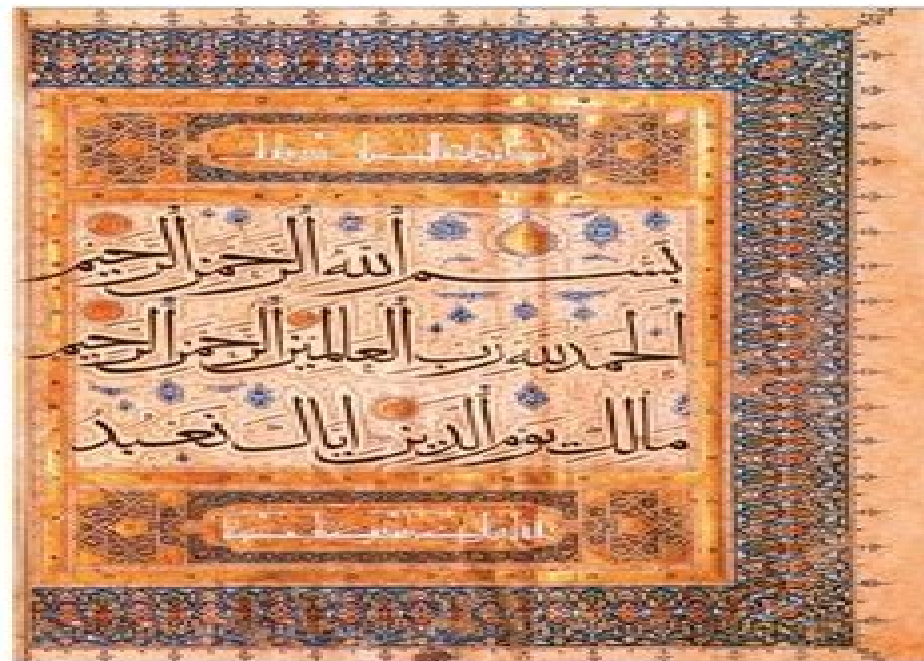 بسم ألله ألرحمن ألرحيم
ألحمد لله رب ألعالمين ألرحمن ألرحيم
مالك يوم ألدين إياك نعبد